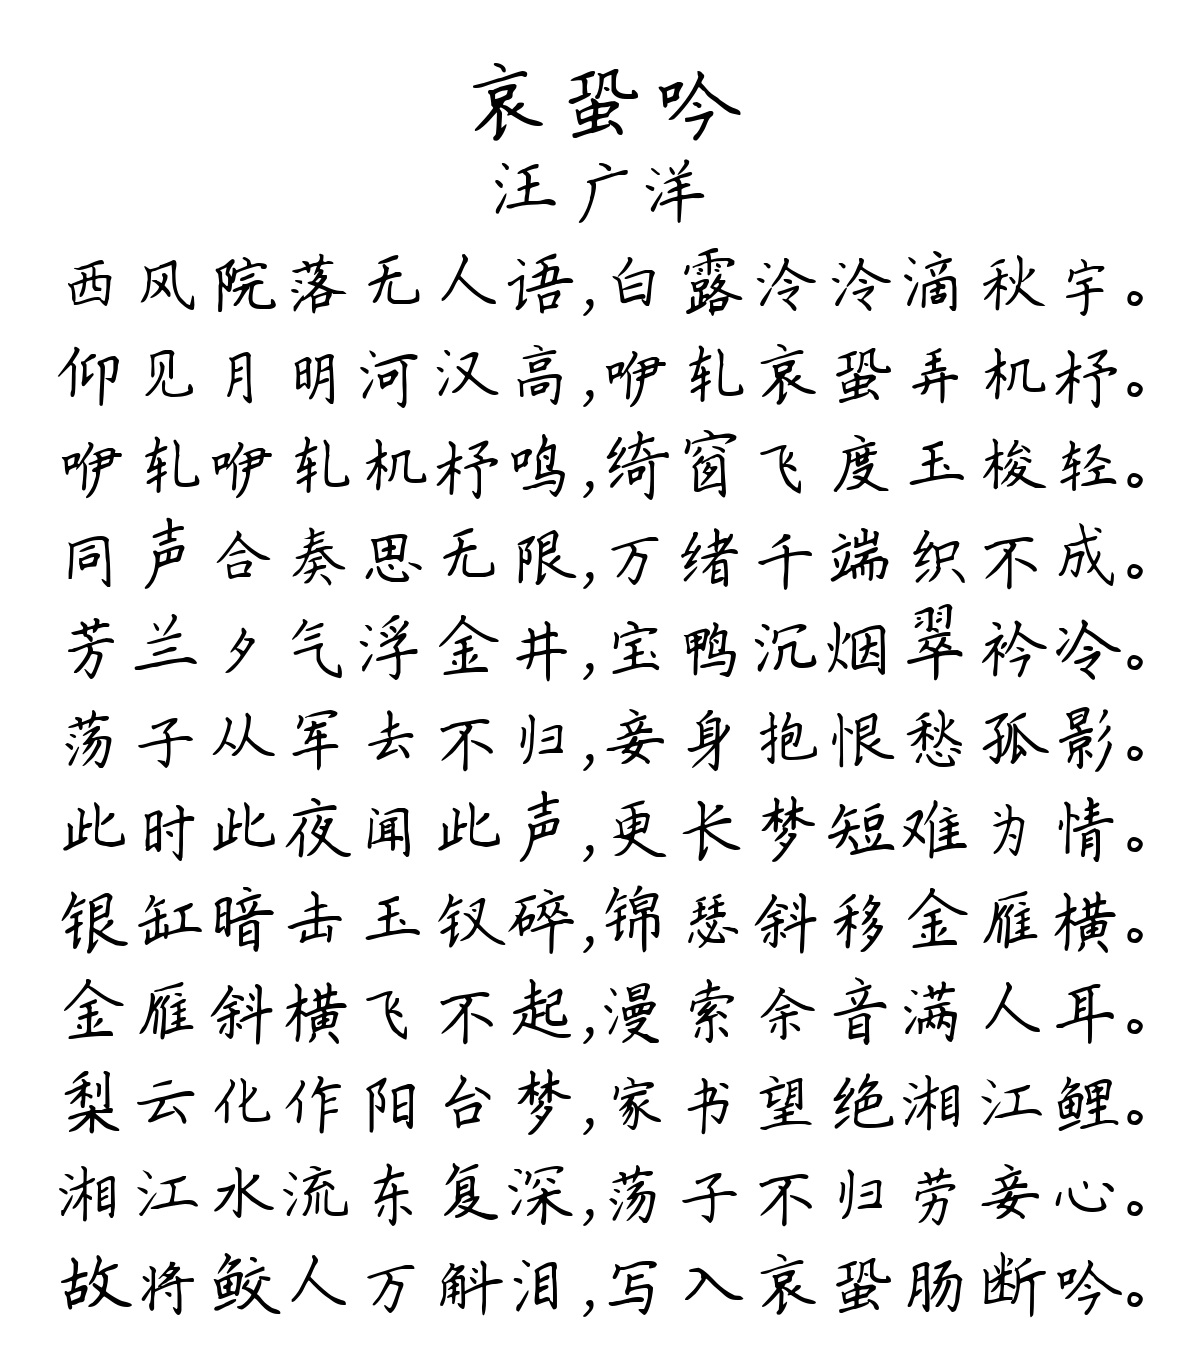 哀蛩吟
汪广洋
西风院落无人语,白露泠泠滴秋宇。
仰见月明河汉高,咿轧哀蛩弄机杼。
咿轧咿轧机杼鸣,绮窗飞度玉梭轻。
同声合奏思无限,万绪千端织不成。
芳兰夕气浮金井,宝鸭沉烟翠衿冷。
荡子从军去不归,妾身抱恨愁孤影。
此时此夜闻此声,更长梦短难为情。
银缸暗击玉钗碎,锦瑟斜移金雁横。
金雁斜横飞不起,漫索余音满人耳。
梨云化作阳台梦,家书望绝湘江鲤。
湘江水流东复深,荡子不归劳妾心。
故将鲛人万斛泪,写入哀蛩肠断吟。